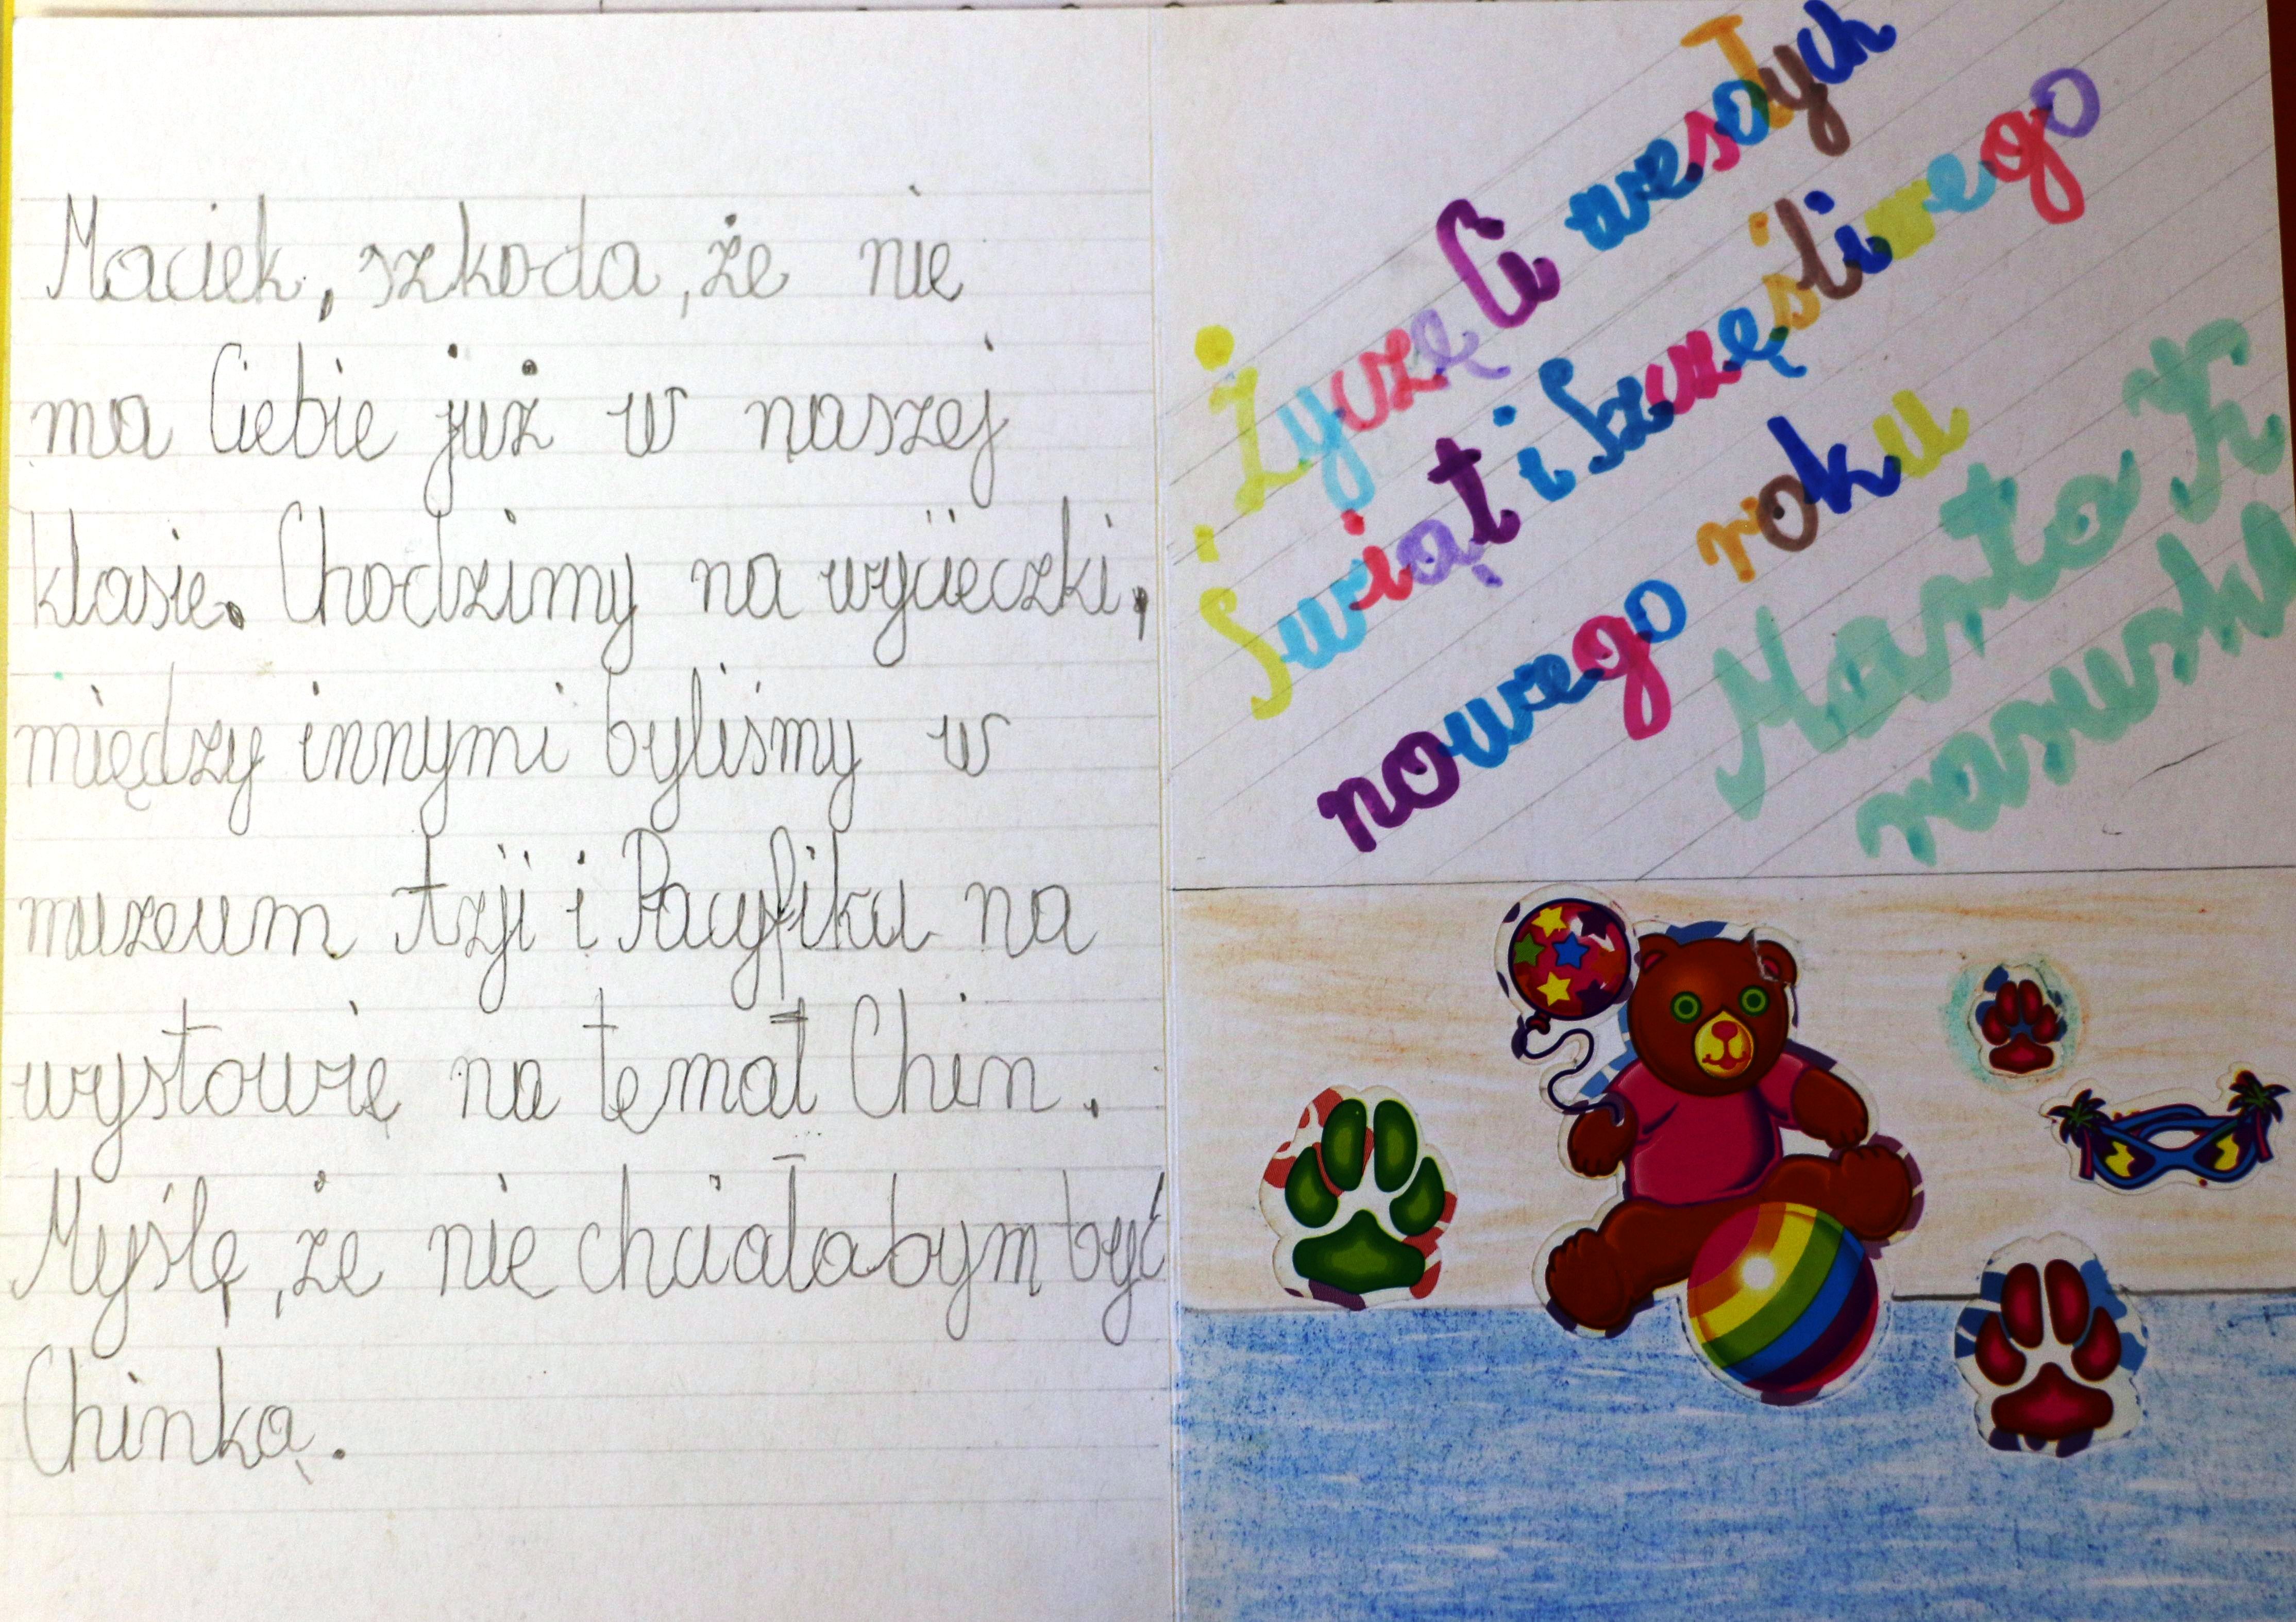 Maciek, szkoda, że nie
ma Ciebie już w naszej
klasie. Chodzimy na wycieczki,
między innymi byliśmy w
muzeum Azji i Pacyfiku na
wystawie na temat Chin.
Myślę, że nie chciałabym być
Chinką.
Życzę Ci wesołych
Świąt i Szczęśliwego
nowego roku
Marta K